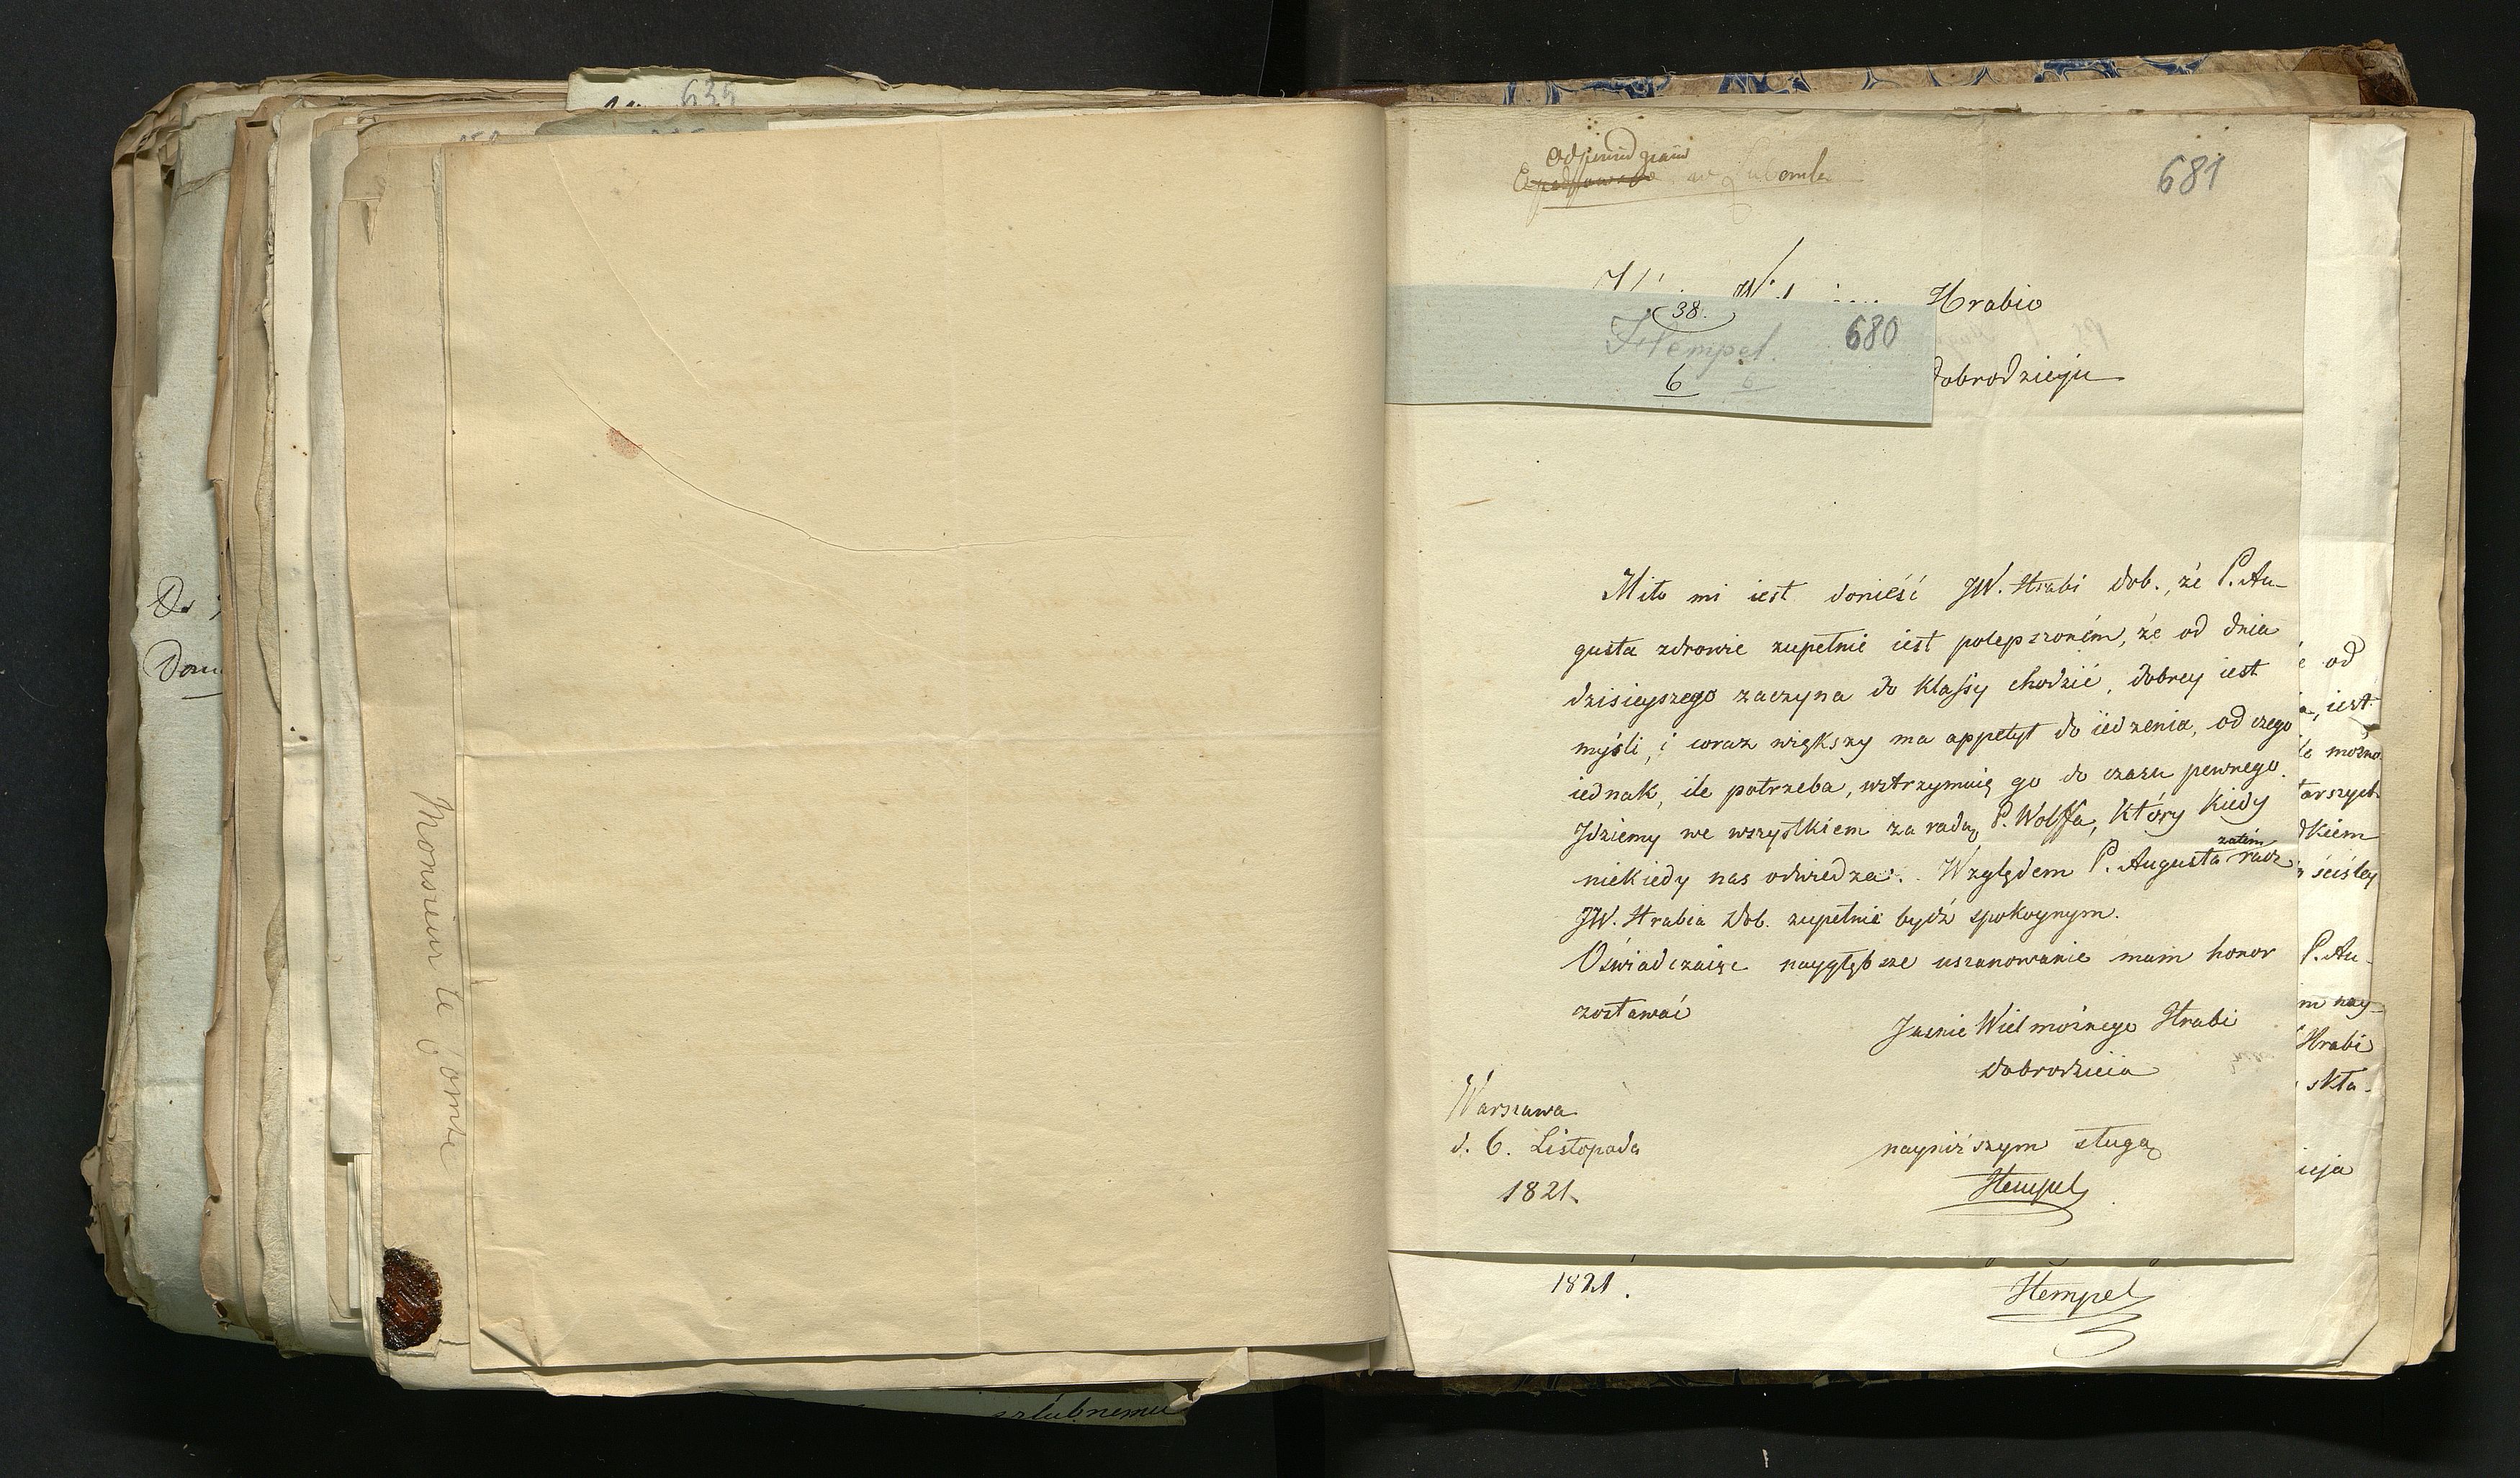 635
Do
Dom
Monsieur le Comte
Odpowiedziano
w Lubomlu
681
Hrabio
38.
Hempel.
680
6
6
Dobrodzieju
Miło mi iest donieść JW. Hrabi Dob., że P. Au-
gusta zdrowie zupełnie iest polepszoném, że od dnia
dzisieyszego zaczyna do klassy chodzić, dobrey iest
myśli, i coraz większy ma appetyt do iedzenia, od czego
iednak, ile potrzeba, wstrzymuię go do czasu pewnego.
Jdziemy we wszystkiem za radą P. Wolffa, który kiedy
niekiedy nas odwiedza. Względem P. Augusta zatém racz
JW. Hrabia Dob. zupełnie bydź spokoynym.
Oświadczaiąc naygłębsze uszanowanie mam honor
zostawać
Jaśnie Wielmożnego Hrabi
Dobrodzieia
Warszawa
d. 6. Listopada
1821.
nayniższym sługą
Hempel
od
iest
można
arszych
dkiem
ściśley
P. Au-
m nay-
Hrabi
skła-
ieja
1821.
Hempel